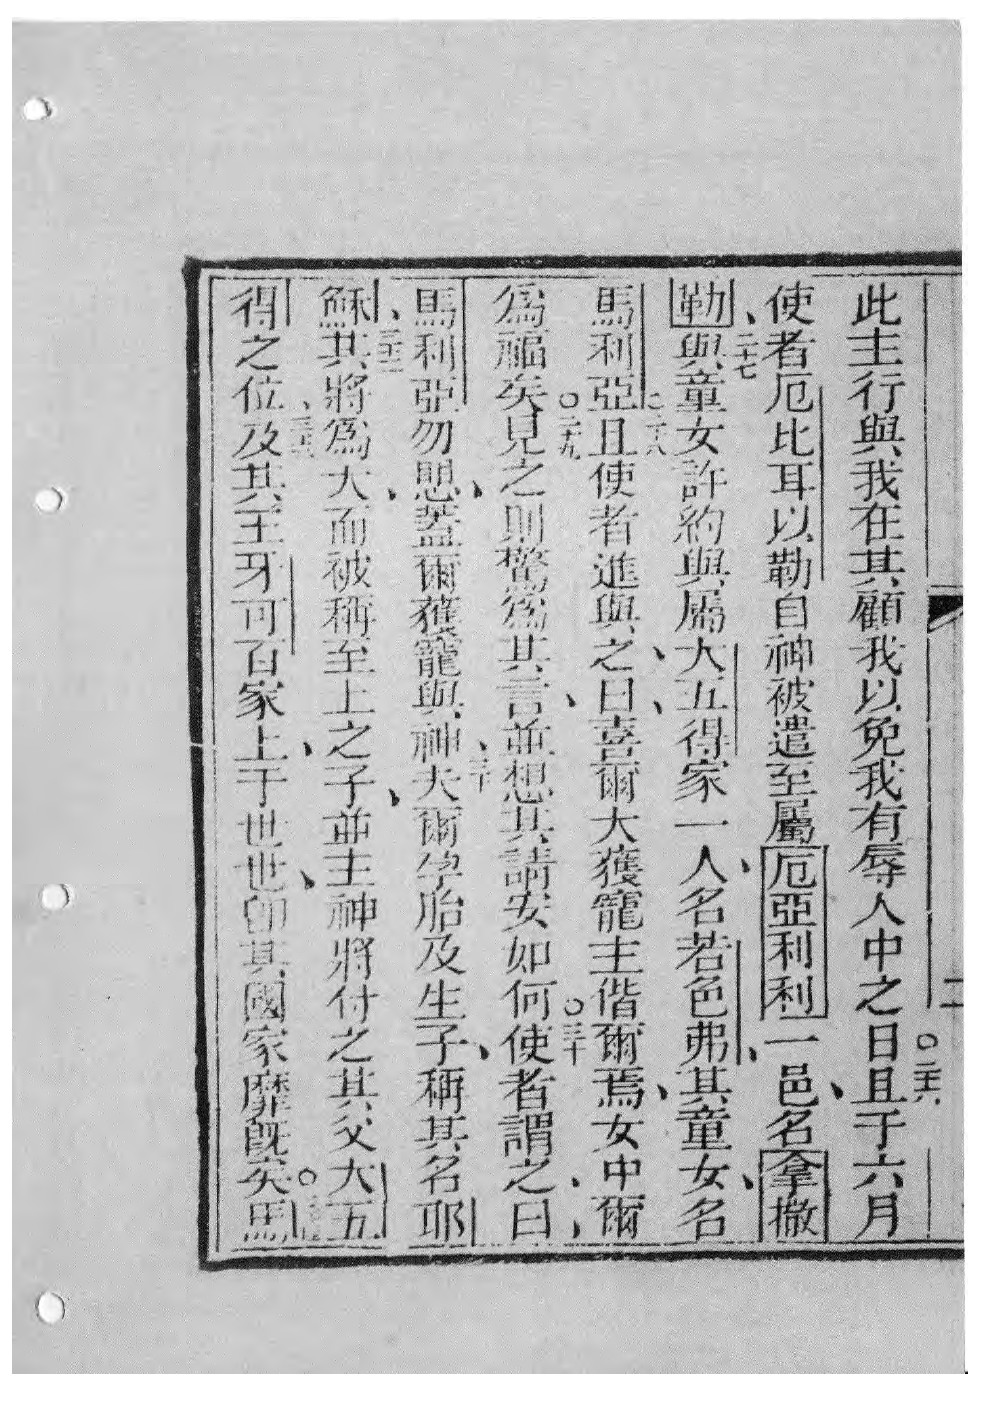 此主行與我在其顧我以免我有辱人中之日且于六月
使者厄比耳以勒自神被遣至屬厄亞利利一邑名拿撒
勒與童女許約與屬大五得家一人名若色弗其童女名
馬利亞且使者進與之曰喜爾大獲寵主偕爾焉女中爾
為福矣見之則驚為其言並想其請安如何使者謂之曰
馬利亞勿思蓋爾獲寵與神夫爾孕胎及生子稱其名耶
穌其將為大而被稱至上之子並主神將付之其父大五
得之位及其王牙可百家上于世世卽其國家靡旣矣馬